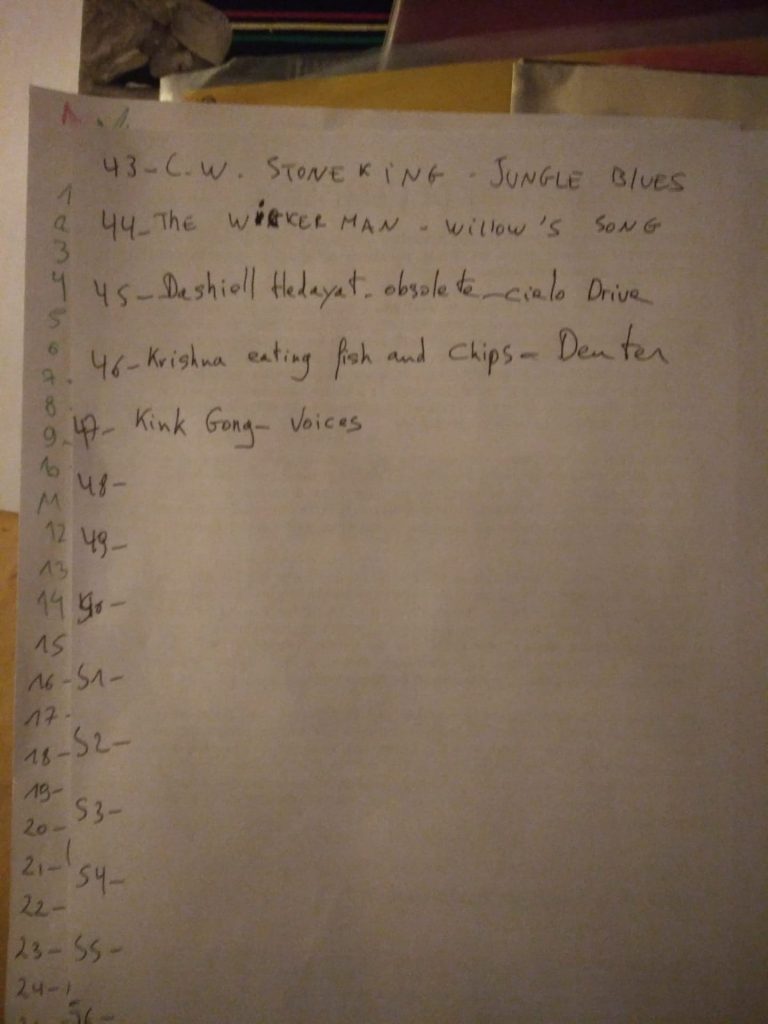 1. .1.
43-C.W. STONE KiNG - JUNGLE BlUES
1
44-THE WiCKER MAN - Willow's SONG
2
3
45-Dashiell Hedayat-obsolete-cielo Drive
4
5
46-Krishna eating fish and chips- Deuter
6
7.
8
47- Kink Gong- Voices
9-
10
48-
11
49-
12
13
50-
14
15
16-
51-
17-
52-
18-
19-
53-
20-
21-
54-
22-
23-
55-
24-
56-